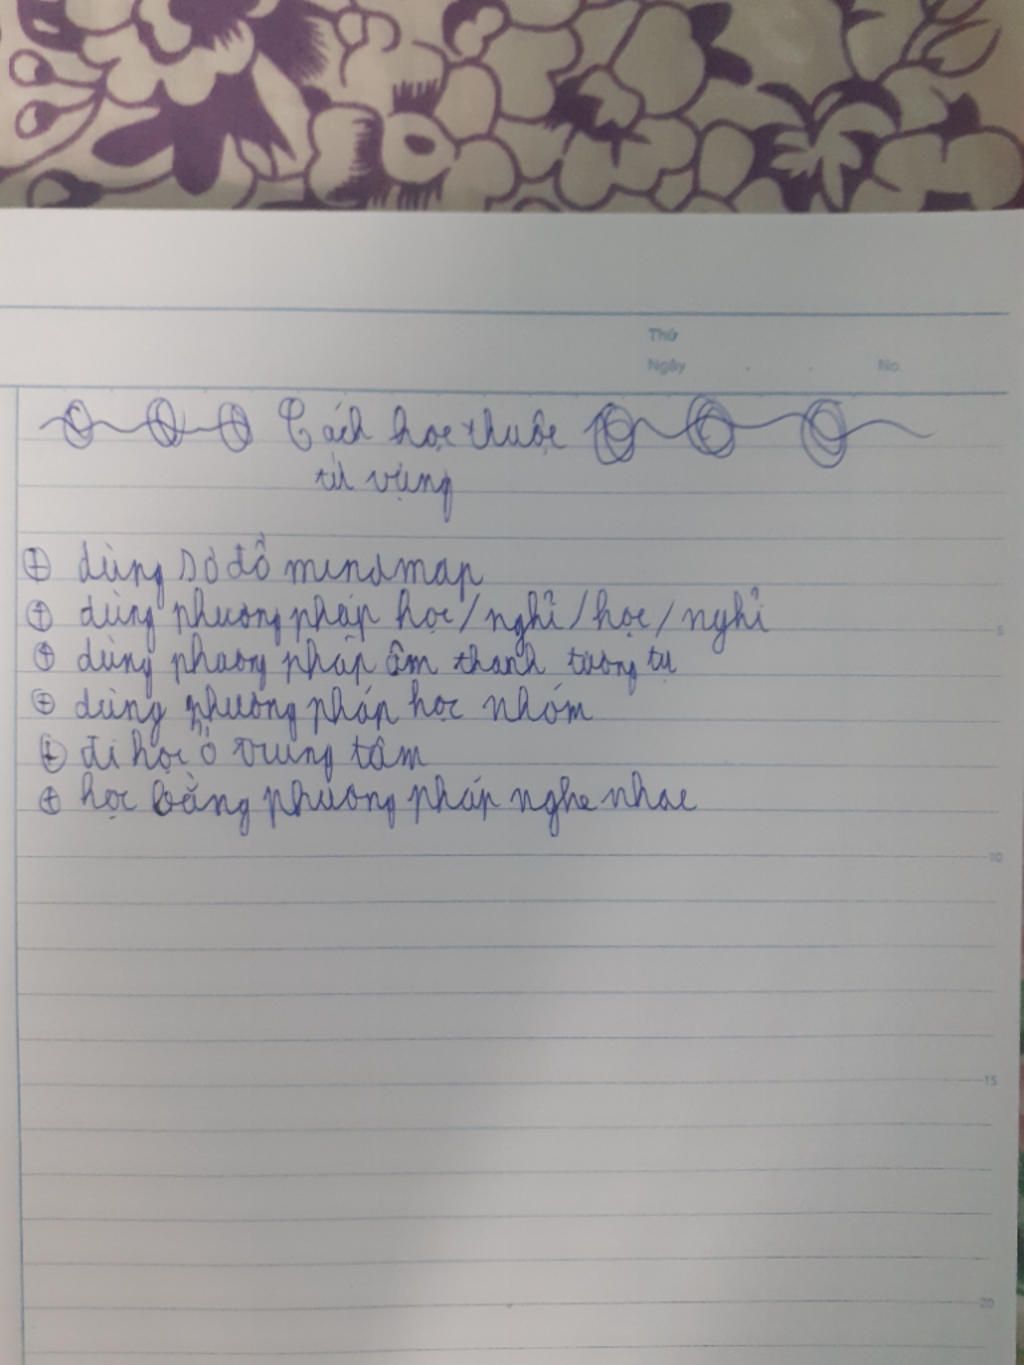 Thứ
Ngày . . No.
Cách học thuộc
từ vựng
⊕ dùng sơ đồ mindmap
⊕ dùng phương pháp học/nghỉ/học/nghỉ
⊕ dùng phương pháp âm thanh tương tự
⊕ dùng phương pháp học nhóm
⊕ đi học ở trung tâm
⊕ học bằng phương pháp nghe nhac
5
10
15
20